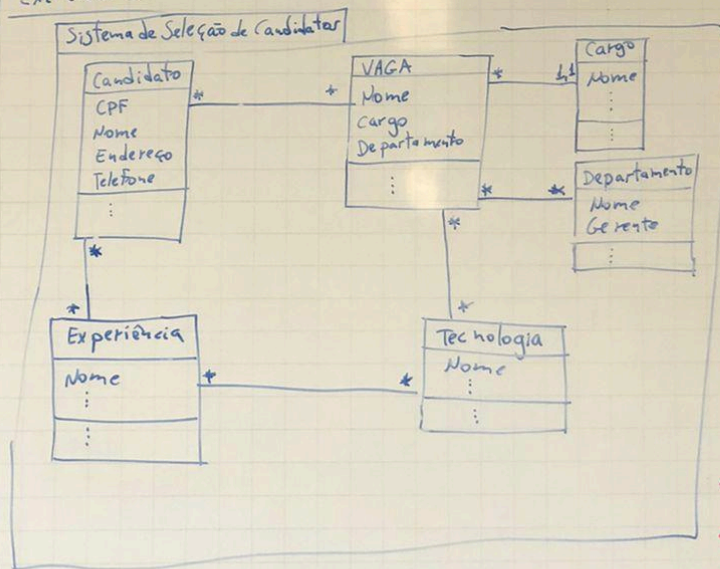 Sistema de Seleção de Candidatos
Candidato
CPF
Nome
Endereço
Telefone
⋮
*
*
VAGA
Nome
Cargo
Departamento
⋮
*
1,1
Cargo
Nome
⋮
⋮
*
*
Departamento
Nome
Gerente
⋮
*
*
*
*
Experiência
Nome
⋮
⋮
*
*
Tecnologia
Nome
⋮
⋮